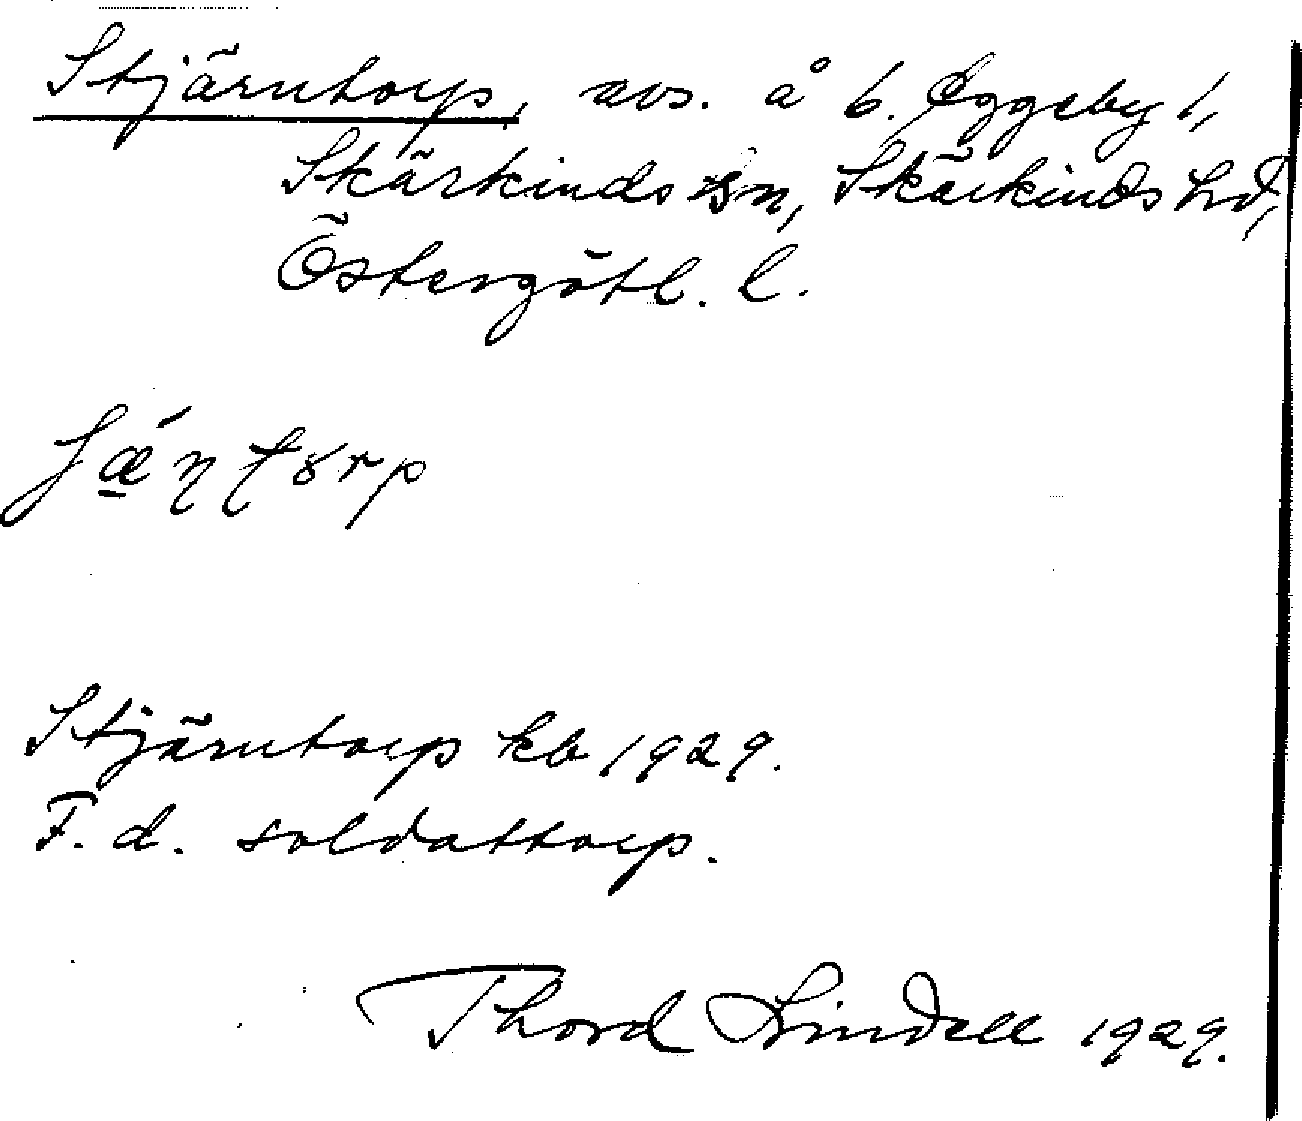 Stjärntorp, avs. å b. Eggeby 1,
Skärkinds sn, Skärkinds hd,
Östergötl. l.
Stjärntorp kb 1929.
F.d. soldattorp.
Thord Lindell 1929.